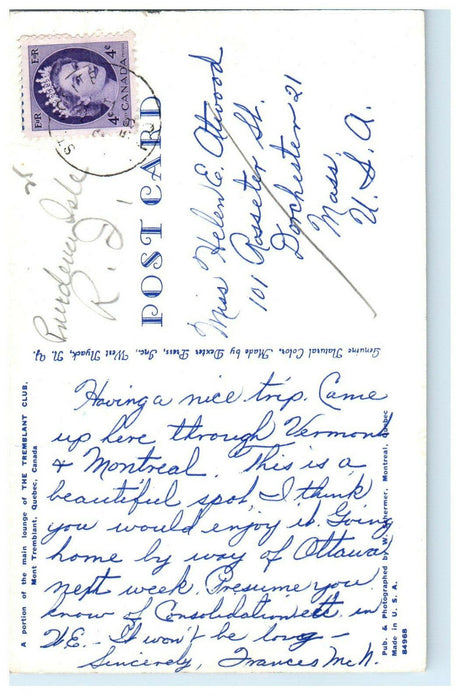 E·R
4¢
CANADA
4¢
E·R
POST CARD
Miss Helen E. Atwood
101 Rosseter St.
Dorchester 21
Mass.
U.S.A.
Prudence Isle
R.I.
Genuine Natural Color, Made by Dexter Press, Inc., West Nyack, N. Y.
A portion of the main lounge of THE TREMBLANT CLUB,
Mont Tremblant, Quebec, Canada
Having a nice trip. Came
up here through Vermont
& Montreal. This is a
beautiful spot, I think
you would enjoy it. Going
home by way of Ottawa
next week. Presume you
know of Consolidation etc. in
W.E. - It won't be long -
Sincerely, Frances McN.
Pub. & Photographed by W. Schermer, Montreal, Quebec
Made in U. S. A.
84965